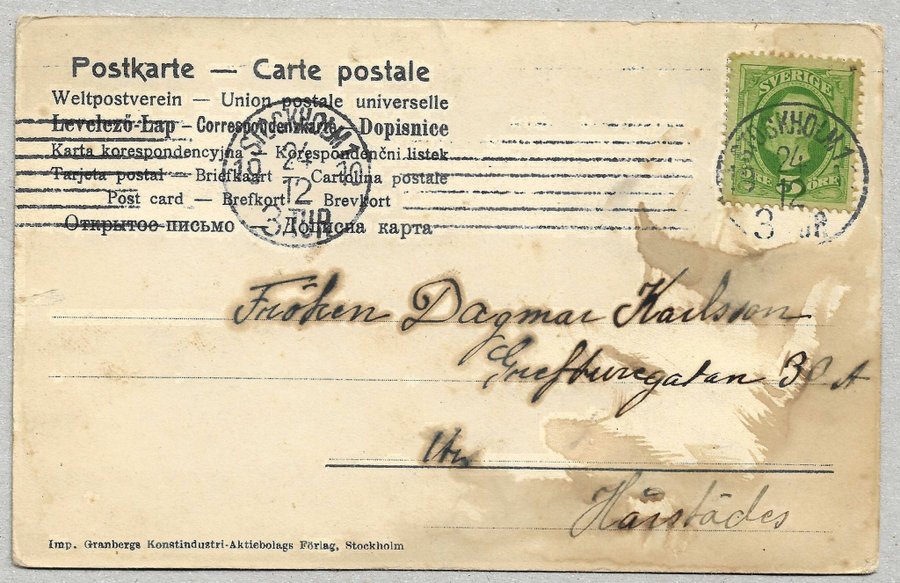 Postkarte — Carte postale
Weltpostverein — Union postale universelle
Levelező-Lap — Correspondenzkarte — Dopisnice
Karta korespondencyjna — Korespondenčni listek
Tarjeta postal — Briefkaart — Cartolina postale
Post card — Brefkort — Brevkort
Открытое письмо — Дописна карта
STOCKHOLM 1
24
12
3 TUR
SVERIGE
STOCKHOLM 1
24
12
3 TUR
Fröken Dagmar Karlsson
Grefturegatan 30 A
Härstädes
Imp. Granbergs Konstindustri-Aktiebolags Förlag, Stockholm